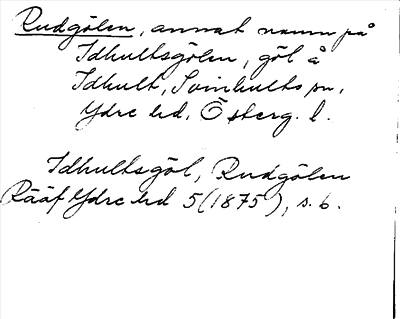 Rudgölen, annat namn på
Idhultsgölen, göl å
Idhult, Svinhults sn,
Ydre hd, Österg. l.
Idhultsgöl, Rudgölen
Rääf Ydre hd 5 (1875), s. 6.